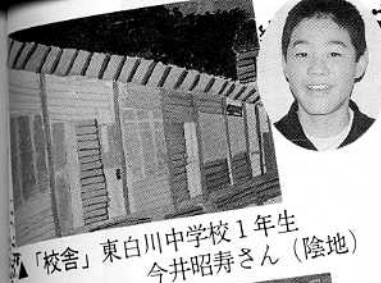 ▲「校舎」東白川中学校1年生
今井昭寿さん（陰地）